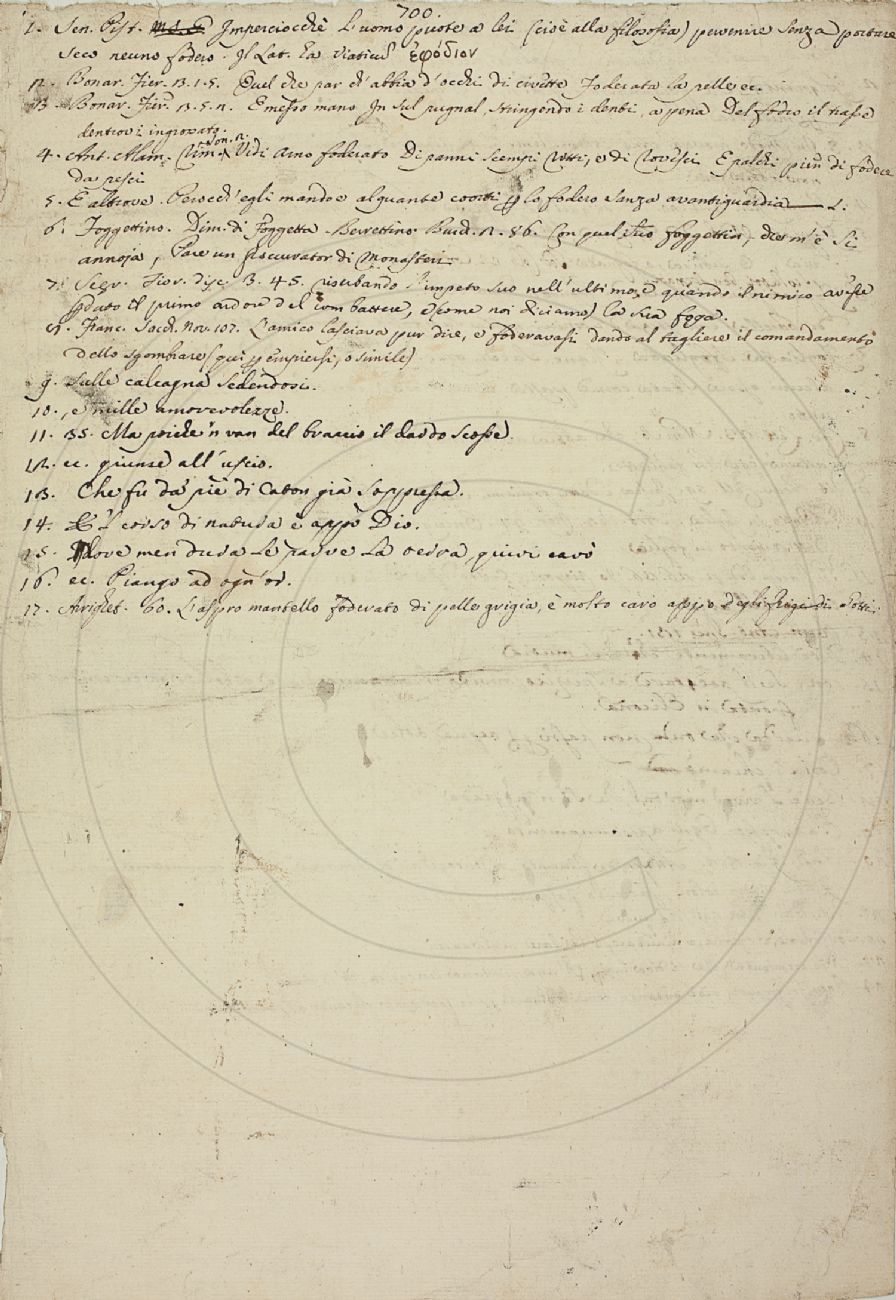 700.
1. Sen. Pist. Imperciocchè l'uomo puote a lei (cioè alla filosofia) pervenire senza portare
seco neuno fodero. Il Lat. ha viaticu ἐφόδιον
2. Bonar. Fier. 3. 1. 5. Quel che par ch'abbia d'occhi di civette Foderata la pelle ec.
3. Bonar. Fier. 3. 5. 2. E messo mano In sul pugnal, stringendo i denti, a pena Del fodro il trasse
dentrovi ingrossato.
4. Ant. Alam. Rim. son. 2. Vidi Arno foderato Di panni scempi rotti, e di rovesci E palchi pien di fodere
da pesci
5. E altrove. Perocch'egli mandoe alquante coorti p lo fodero sanza avantiguardia L.
6. Foggettino. Dim. di Foggetta. Berrettino. Burch. 2. 86. Con quel suo foggettin, che m'è sì
annoja, Pare un proccurator di Monasteri
7. Segr. Fior. disc. 3. 45. riserbando l'impeto suo nell'ultimo, e quando il nimico avesse
pduto il primo ardore del combattere, e (come noi diciamo) la sua foga.
8. Franc. Sacch. Nov. 107. L'amico lasciava pur dire, e foderavasi dando al tagliere il comandamento
dello sgombrare (qui p empiersi, o simile)
9. sulle calcagna sedendosi.
10. , e mille amorevolezze.
11. 35. Ma poiche'n van del braccio il dardo scosse.
12. ec. giunse all'uscio.
13. Che fu da' piè di Caton già soppressa.
14. E 'l corso di natura è appo Dio.
15. dove men dura Le parve la terra, quivi cavò
16. ec. Piango ad ogn'or.
17. Arrighet. 60. L'aspro mantello foderato di pelle grigia, è molto caro appo degli Gotti.